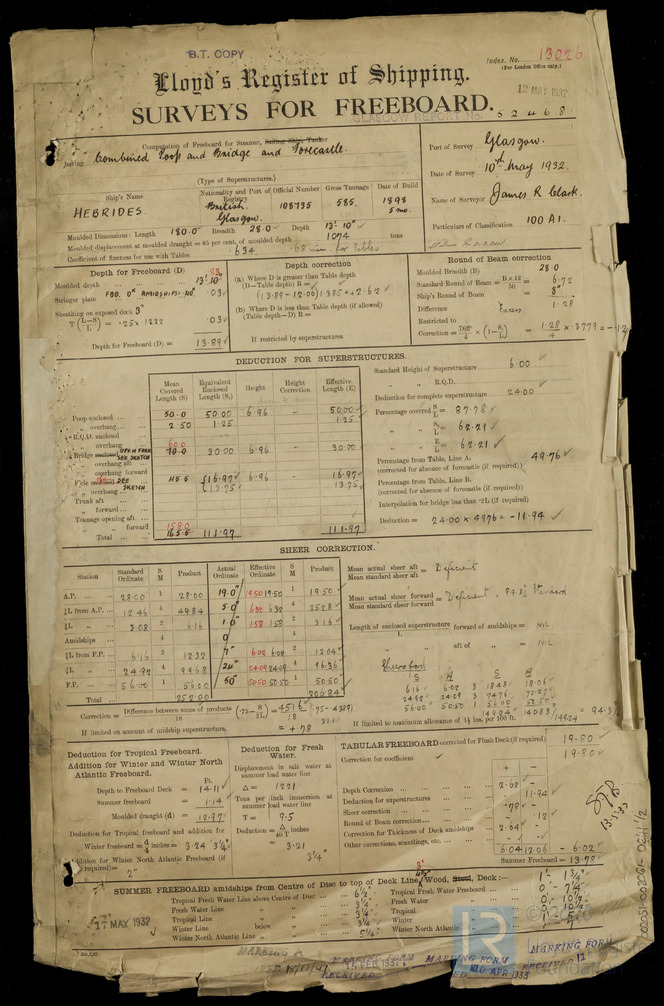 B.T. COPY
Index. No. 13026
(For London Office only.)
Lloyd's Register of Shipping.
12 MAY 1932
SURVEYS FOR FREEBOARD.
GLASGOW REPORT No. 52468
Computation of Freeboard for Steamer, Sailing Ship, Tanker
having Combined Poop and Bridge and Forecastle.
(Type of Superstructures.)
Port of Survey Glasgow.
Date of Survey 10th May 1932.
Name of Surveyor James R Clark.
Particulars of Classification 100 A1.
Ship's Name
Nationality and Port of Registry
Official Number
Gross Tonnage
Date of Build
HEBRIDES
British.
Glasgow.
108735
585.
1898
5 mo.
Moulded Dimensions: Length 180.0 Breadth 28.0 Depth 13' 10"
Moulded displacement at moulded draught = 85 per cent. of moulded depth 1074 tons
Coefficient of fineness for use with Tables .634 .68 min for Tables
Depth for Freeboard (D)
Moulded depth ... 13' 10"
Stringer plate .03
Sheathing on exposed deck 3"
T (L-S/L) = .25 x .1222 .03
Depth for Freeboard (D) = 13.89
Depth correction
(a) Where D is greater than Table depth
(D—Table depth) R =
(13.89 - 12.00) 1.385 = +2.62
(b) Where D is less than Table depth (if allowed)
(Table depth—D) R =
If restricted by superstructures
Round of Beam correction
Moulded Breadth (B) 28.0
Standard Round of Beam = B x 12/50 = 6.72
Ship's Round of Beam = 8"
Difference Excess 1.28
Restricted to
Correction = Diff/4 x (1-S/L) = 1.28/4 x .3779 = -.12
DEDUCTION FOR SUPERSTRUCTURES.
Mean Covered Length (S)
Equivalent Enclosed Length (S₁)
Height
Height Correction
Effective Length (E)
Poop enclosed ... 50.0 50.00 6.96 - 50.00
" overhang ... 2.50 1.25 1.25
R.Q.D. enclosed
" overhang
Bridge enclosed OPEN FORD SEE SKETCH 70.0 60.0 30.00 6.96 30.00
" overhang aft
" overhang forward
F'cle enclosed SEE SKETCH 45.5 16.97 6.96 16.97
" overhang 13.75 13.75
Trunk aft
" forward
Tonnage opening aft
" forward 158.0
Total 165.5 111.97 111.97
Standard Height of Superstructure 6.00
" " R.Q.D.
Deduction for complete superstructure 24.00
Percentage covered S/L = 87.78
" " S₁/L = 62.21
" " E/L = 62.21
Percentage from Table, Line A. 49.76
(corrected for absence of forecastle (if required))
Percentage from Table, Line B.
(corrected for absence of forecastle (if required))
Interpolation for bridge less than .2L (if required)
Deduction = 24.00 x .4976 = -11.94
SHEER CORRECTION.
Station
Standard Ordinate
S M
Product
Actual Ordinate
Effective Ordinate
S M
Product
A.P. 28.00 1 28.00 19.0" 19.50 19.50 1 19.50
⅙L from A.P. 12.46 4 49.84 5.0" 6.32 6.32 4 25.28
⅓L " 3.08 2 6.16 1.0" 1.58 1.58 2 3.16
Amidships 4 0 4
⅓L from F.P. 6.16 2 12.32 7" 6.02 6.02 2 12.04
⅙L " 24.92 4 99.68 24" 24.09 24.09 4 96.36
F.P. 56.00 1 56.00 50" 50.50 50.50 1 50.50
Total 252.00 206.84
Mean actual sheer aft / Mean standard sheer aft = Deficient
Mean actual sheer forward / Mean standard sheer forward = Deficient. 94.3% Standard
Length of enclosed superstructure forward of amidships = NIL
L
" " aft of " = NIL
Sheer ford
Correction = Difference between sums of products/18 (.75 - S/2L) = 45.16/18 (.75 - .4389)
= +.78
If limited on account of midship superstructure.
If limited to maximum allowance of 1½ ins. per 100 ft.
Deduction for Tropical Freeboard.
Addition for Winter and Winter North
Atlantic Freeboard.
Ft.
Depth to Freeboard Deck = 14.11
Summer freeboard = 1.14
Moulded draught (d) = 12.97
Deduction for Tropical freeboard and addition for
Winter freeboard = d/4 inches = 3.24 3¼"
Addition for Winter North Atlantic Freeboard (if
required) = 2"
Deduction for Fresh Water.
Displacement in salt water at
summer load water line
Δ = 1221
Tons per inch immersion at
summer load water line
T = 9.5
Deduction = Δ/40 T inches
= 3.21
3¼"
TABULAR FREEBOARD corrected for Flush Deck (if required) 19.80
Correction for coefficient 19.80
+ -
Depth Correction 2.62
Deduction for superstructures 11.94
Sheer correction .78
Round of Beam correction .12
Correction for Thickness of Deck amidships 2.64
Other corrections, scantlings, etc.
6.04 12.06 - 6.02
Summer Freeboard = 13.78
SUMMER FREEBOARD amidships from Centre of Disc to top of Deck Line, Wood, Steel, Deck:— 1' - 1¾"
Tropical Fresh Water Line above Centre of Disc 6½" Tropical Fresh Water Freeboard 0' - 7¼"
Fresh Water Line " " 3¼" Fresh Water " 0' - 10½"
Tropical Line " " 3¼" Tropical " 0' - 10½"
Winter Line below " 3¼" Winter " 1' - 5"
Winter North Atlantic Line " " 5¼" Winter North Atlantic " 1' - 7"
17 MAY 1932
MARKING FORM
RECEIVED
MARKING FORM
10 APR 1933
MARKING FORM
RECEIVED